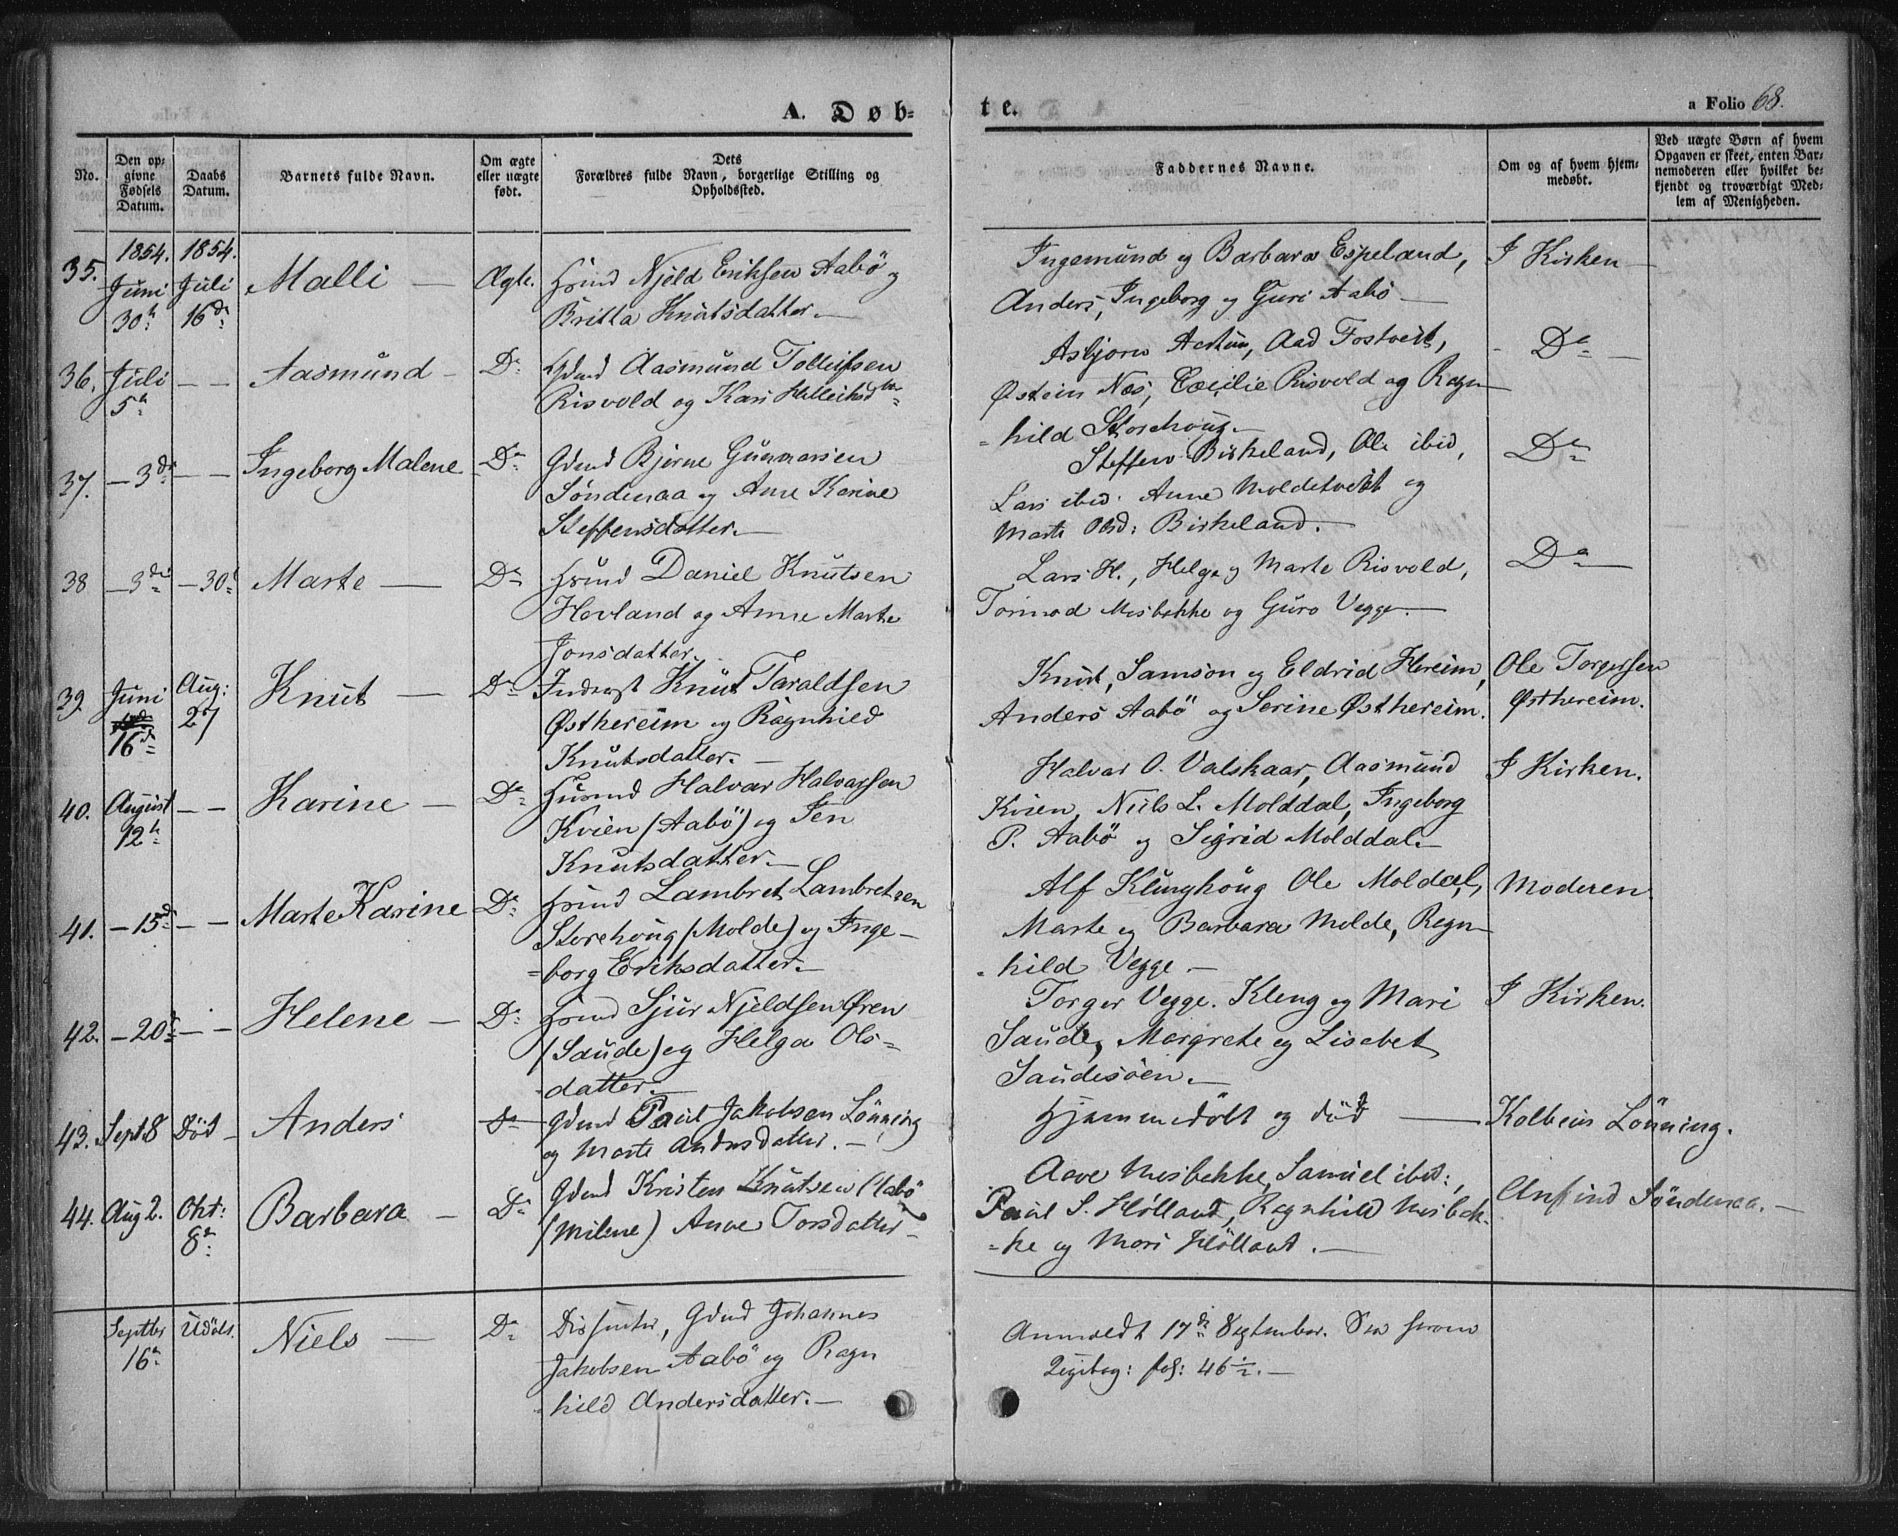 A. Døb-
te.
a Folio 68.
No.
Den op-
givne
Fødsels
Datum.
Daabs
Datum.
Barnets fulde Navn.
Om ægte
eller uægte
født.
Dets
Forældres fulde Navn, borgerlige Stilling og
Opholdssted.
Faddernes Navne.
Om og af hvem hjem-
medøbt.
Ved uægte Børn af hvem
Opgaven er skeet, enten Bar-
nemoderen eller hvilket be-
kjendt og troværdigt Med-
lem af Menigheden.
1854. 1854.
35. Juni 30te Juli 16de Malli — Ægte. Njeld Eriksen Aabö og
Britta Knutsdatter. —
Ingemund og Barbara Espeland, I Kirken —
Anders, Ingeborg og Guri Aabö —
36. Juli 5te — — Aasmund — Do Gdmd Aasmund Tolleifsen
Risvold og Kari
Asbjørn Aartun, Aad Fostveit, — Do —
Østein Næs, Cecilie Risvold og Ragn
-hild Storehoug. —
37. — 3de — — Ingeborg Malene Do Gdmd Bjerne Gunnarsen
Söndenaa og Ane Karine
Steffensdatter. —
Steffen Birkeland, Ole ibid, Do
Lars ibid. Anne Moldetveit og
Marte Birkeland. —
38 — 3de — 30te Marte — Do Daniel Knutsen
Hovland og Anne Marte
Jonsdatter.
Lars H., Helge og Marte Risvold, Do —
Tormod Mosbekke og Guro Vegge. —
39. Juni 16de Aug: 27 Knut — Do Inderst Knut Taraldsen
Østhereim og Ragnhild
Knutsdatter. —
Knut, Samson og Eldrid Hereim, Ole Torgersen
Anders Aabö og Serine Østhereim. Østhereim.
40. August 12te — — Karine — Do Husmd Halvar Halvarsen
Kvien (Aabö) og Jen
Knutsdatter. —
Halvar O. Valskaar, Aasmund I Kirken.
Kvien, Niels L. Molddal, Ingeborg
P. Aabö og Sigrid Molddal. —
41. — 15de — — Marte Karine Do Lambret Lambretsen
Storehoug (Molde) og Inge-
-borg Eriksdatter. —
Alf Klunghoug Ole Moldal, Moderen
Marte og Barbara Molde, Ragn
-hild Vegge —
42. — 20de — — Helene — Do Sjur Njeldsen Øren
(Saude) og Helga Ols-
-datter. —
Torger Vegge. Kleng og Mari I Kirken.
Saude, Margrete og Lisebet
Saudesöen. —
43. Sept 8 Död — Anders Do Gdmd Paul Jakobsen Lönning
og Marte Andersdatter. —
Hjemmedöbt og död — Kolbein Lönning.
44. Aug 2. Okt: 8de Barbara — Do Gdmd Kristen Knutsen Aabö
(Milene) Anne Torsdatter —
Aave Mosbekke, Samuel ibid:, Anfind Söndenaa. —
Paul S. Hölland, Ragnhild Mosbek-
-ke og Mari Hölland. —
Septber 16de Udöbt. Niels — Do Dissenter, Gdmd Johannes
Jakobsen Aabö og Ragn
-hild Andersdatter. —
Anmeldt 17de September. See
fol: 46 ½. —